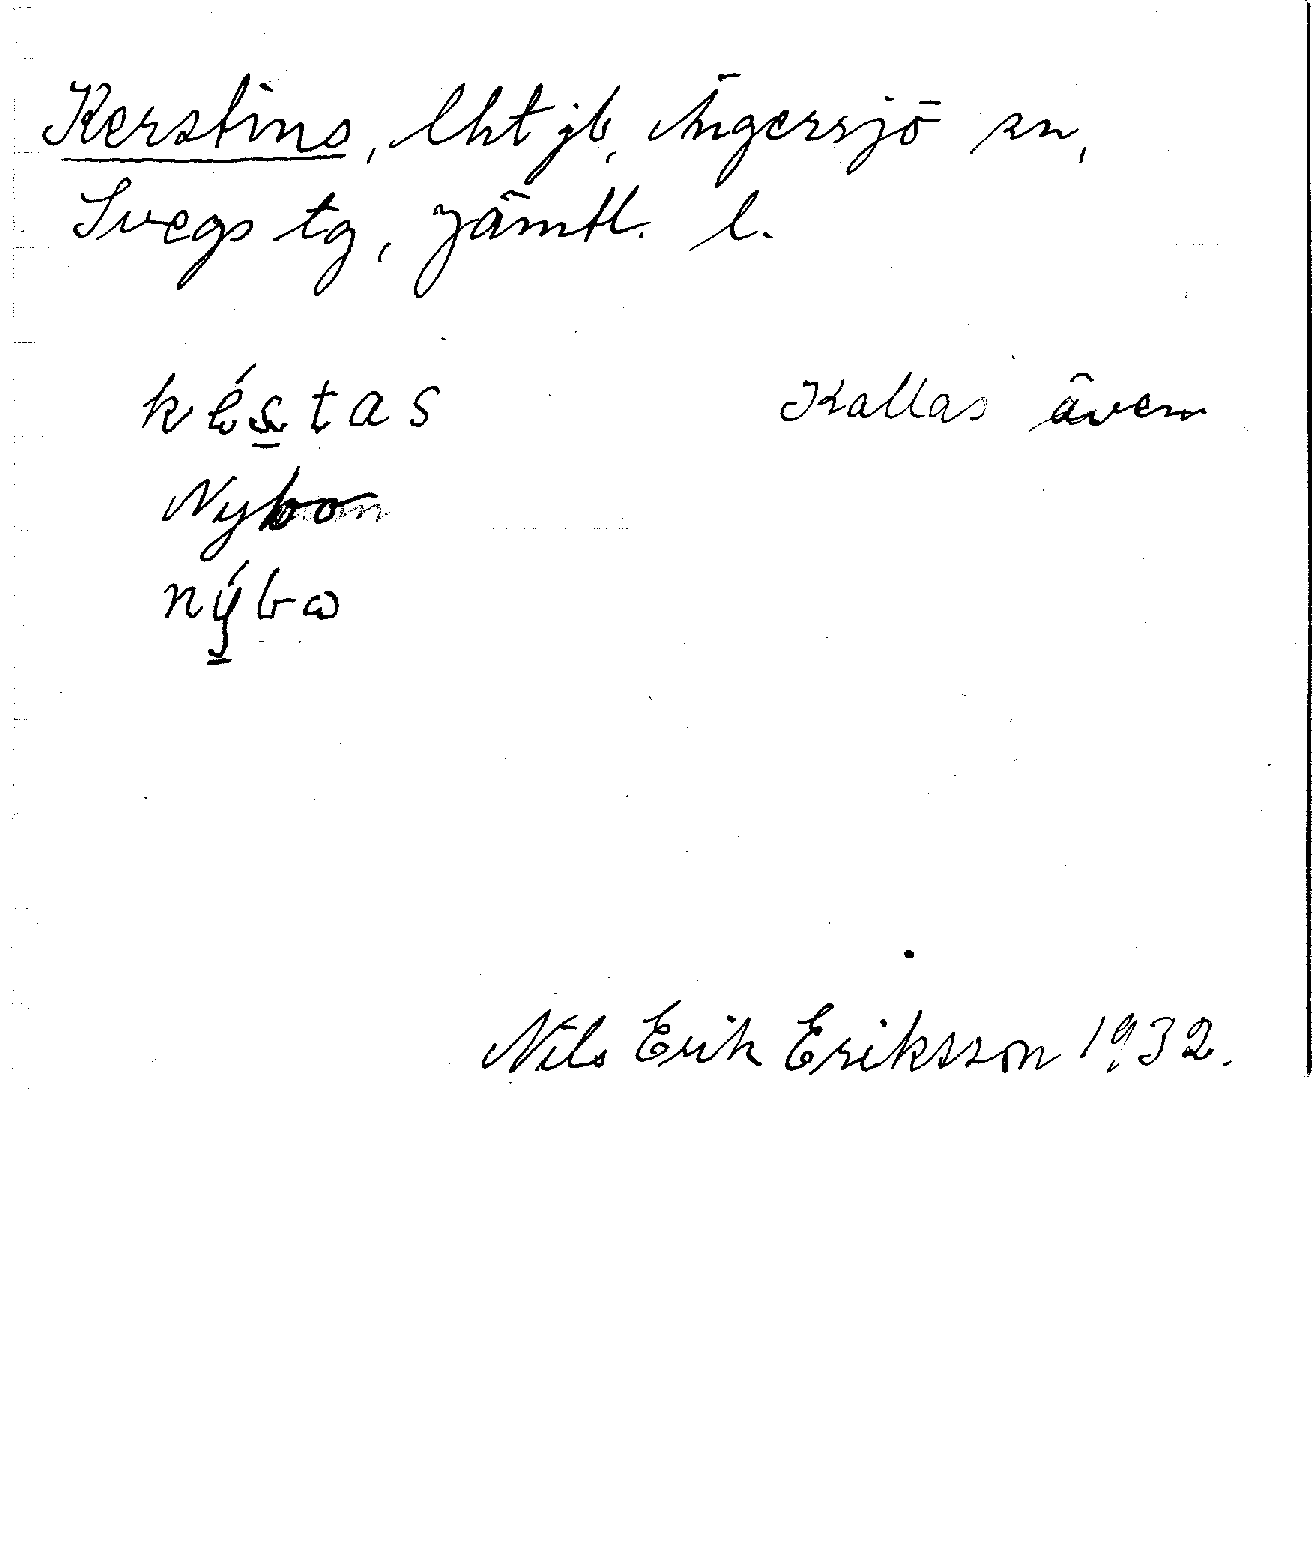 Kerstins, lht jb, Ängersjö sn,
Svegs tg, Jämtl. l.
késtas Kallas även
Nybon
nýbω
Nils Erik Eriksson 1932.